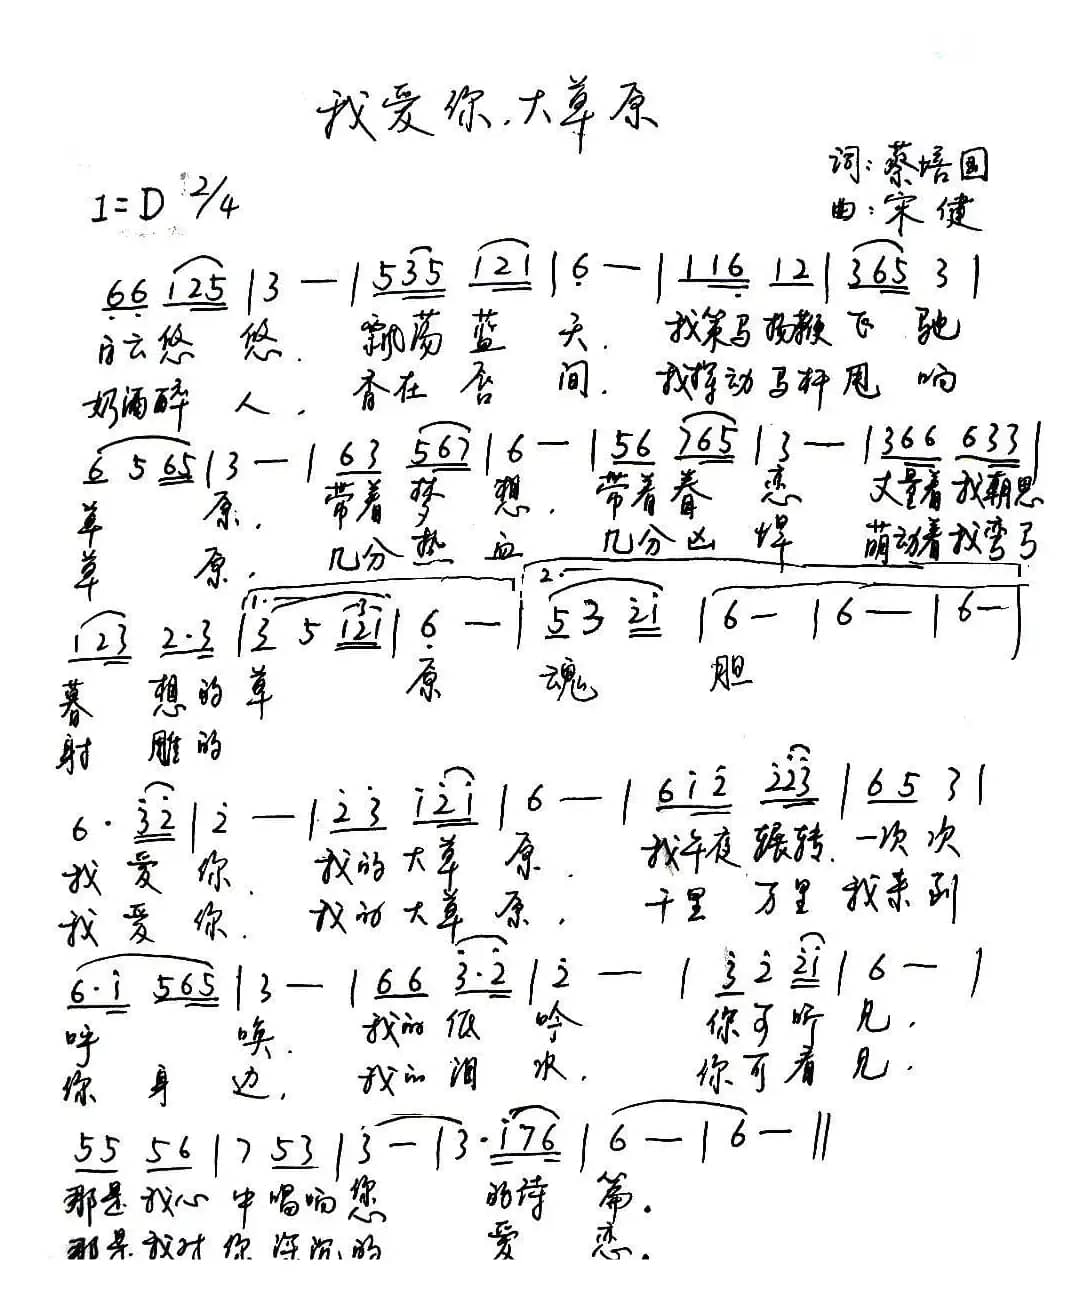 我爱你.大草原
词:蔡培国
1=D 2/4
曲:宋健
66 125 | 3 — | 535 121 | 6 — | 116 12 | 365 3 |
白云悠悠. 飘荡蓝天. 我策马扬鞭飞驰
奶酒醉人. 香在唇间. 我挥动马杆甩响
6 5 65 | 3 — | 63 567 | 6 — | 56 765 | 3 — | 366 633 |
草原. 带着梦想. 带着眷恋 丈量着我朝思
草原. 几分热血 几分凶悍 萌动着我弯弓
1. 2.
123 2·3 | 3 5 121 | 6 — | 5 3 21 | 6 — | 6 — | 6 — |
暮想的草原 魂胆
射雕的
6· 32 | 2 — | 23 121 | 6 — | 612 223 | 65 3 |
我爱你. 我的大草原. 我午夜辗转. 一次次
我爱你. 我的大草原. 千里万里我来到
6·1 565 | 3 — | 66 3·2 | 2 — | 3 2 21 | 6 — |
呼唤. 我的低吟 你可听见.
你身边. 我的泪水. 你可看见.
55 56 | 7 53 | 3 — | 3· 176 | 6 — | 6 — ‖
那是我心中唱响您的诗篇.
那是我对你深沉的爱恋.